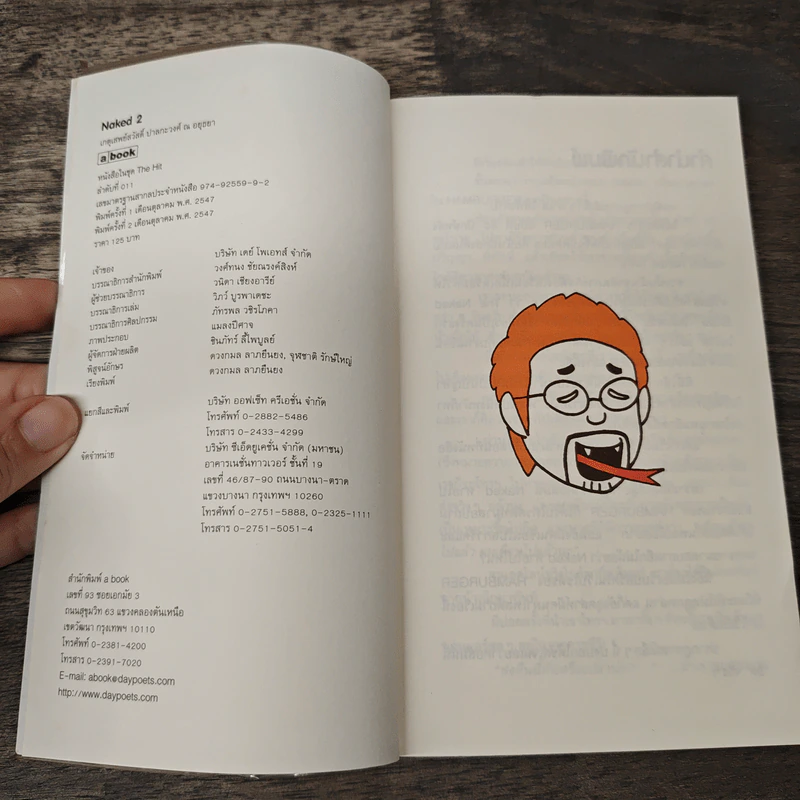 Naked 2
เกตุเสพย์สวัสดิ์ ปาลกะวงศ์ ณ อยุธยา
a book
หนังสือในชุด The Hit
ลำดับที่ 011
เลขมาตรฐานสากลประจำหนังสือ 974-92559-9-2
พิมพ์ครั้งที่ 1 เดือนตุลาคม พ.ศ. 2547
พิมพ์ครั้งที่ 2 เดือนตุลาคม พ.ศ. 2547
ราคา 125 บาท
เจ้าของ บริษัท เดย์ โพเอทส์ จำกัด
บรรณาธิการสำนักพิมพ์ วงศ์ทนง ชัยณรงค์สิงห์
ผู้ช่วยบรรณาธิการ วนิดา เชียงอารีย์
บรรณาธิการเล่ม วิภว์ บูรพาเดชะ
บรรณาธิการศิลปกรรม ภัทรพล วชิรโภคา
ภาพประกอบ แมลงปีศาจ
ผู้จัดการฝ่ายผลิต ชินภัทร์ ลี้ไพบูลย์
พิสูจน์อักษร ดวงกมล ลาภยืนยง, จุฬชาติ รักษ์ใหญ่
เรียงพิมพ์ ดวงกมล ลาภยืนยง
แยกสีและพิมพ์ บริษัท ออฟเซ็ท ครีเอชั่น จำกัด
โทรศัพท์ 0-2882-5486
โทรสาร 0-2433-4299
จัดจำหน่าย บริษัท ซีเอ็ดยูเคชั่น จำกัด (มหาชน)
อาคารเนชั่นทาวเวอร์ ชั้นที่ 19
เลขที่ 46/87-90 ถนนบางนา-ตราด
แขวงบางนา กรุงเทพฯ 10260
โทรศัพท์ 0-2751-5888, 0-2325-1111
โทรสาร 0-2751-5051-4
สำนักพิมพ์ a book
เลขที่ 93 ซอยเอกมัย 3
ถนนสุขุมวิท 63 แขวงคลองตันเหนือ
เขตวัฒนา กรุงเทพฯ 10110
โทรศัพท์ 0-2381-4200
โทรสาร 0-2391-7020
E-mail: abook@daypoets.com
http://www.daypoets.com